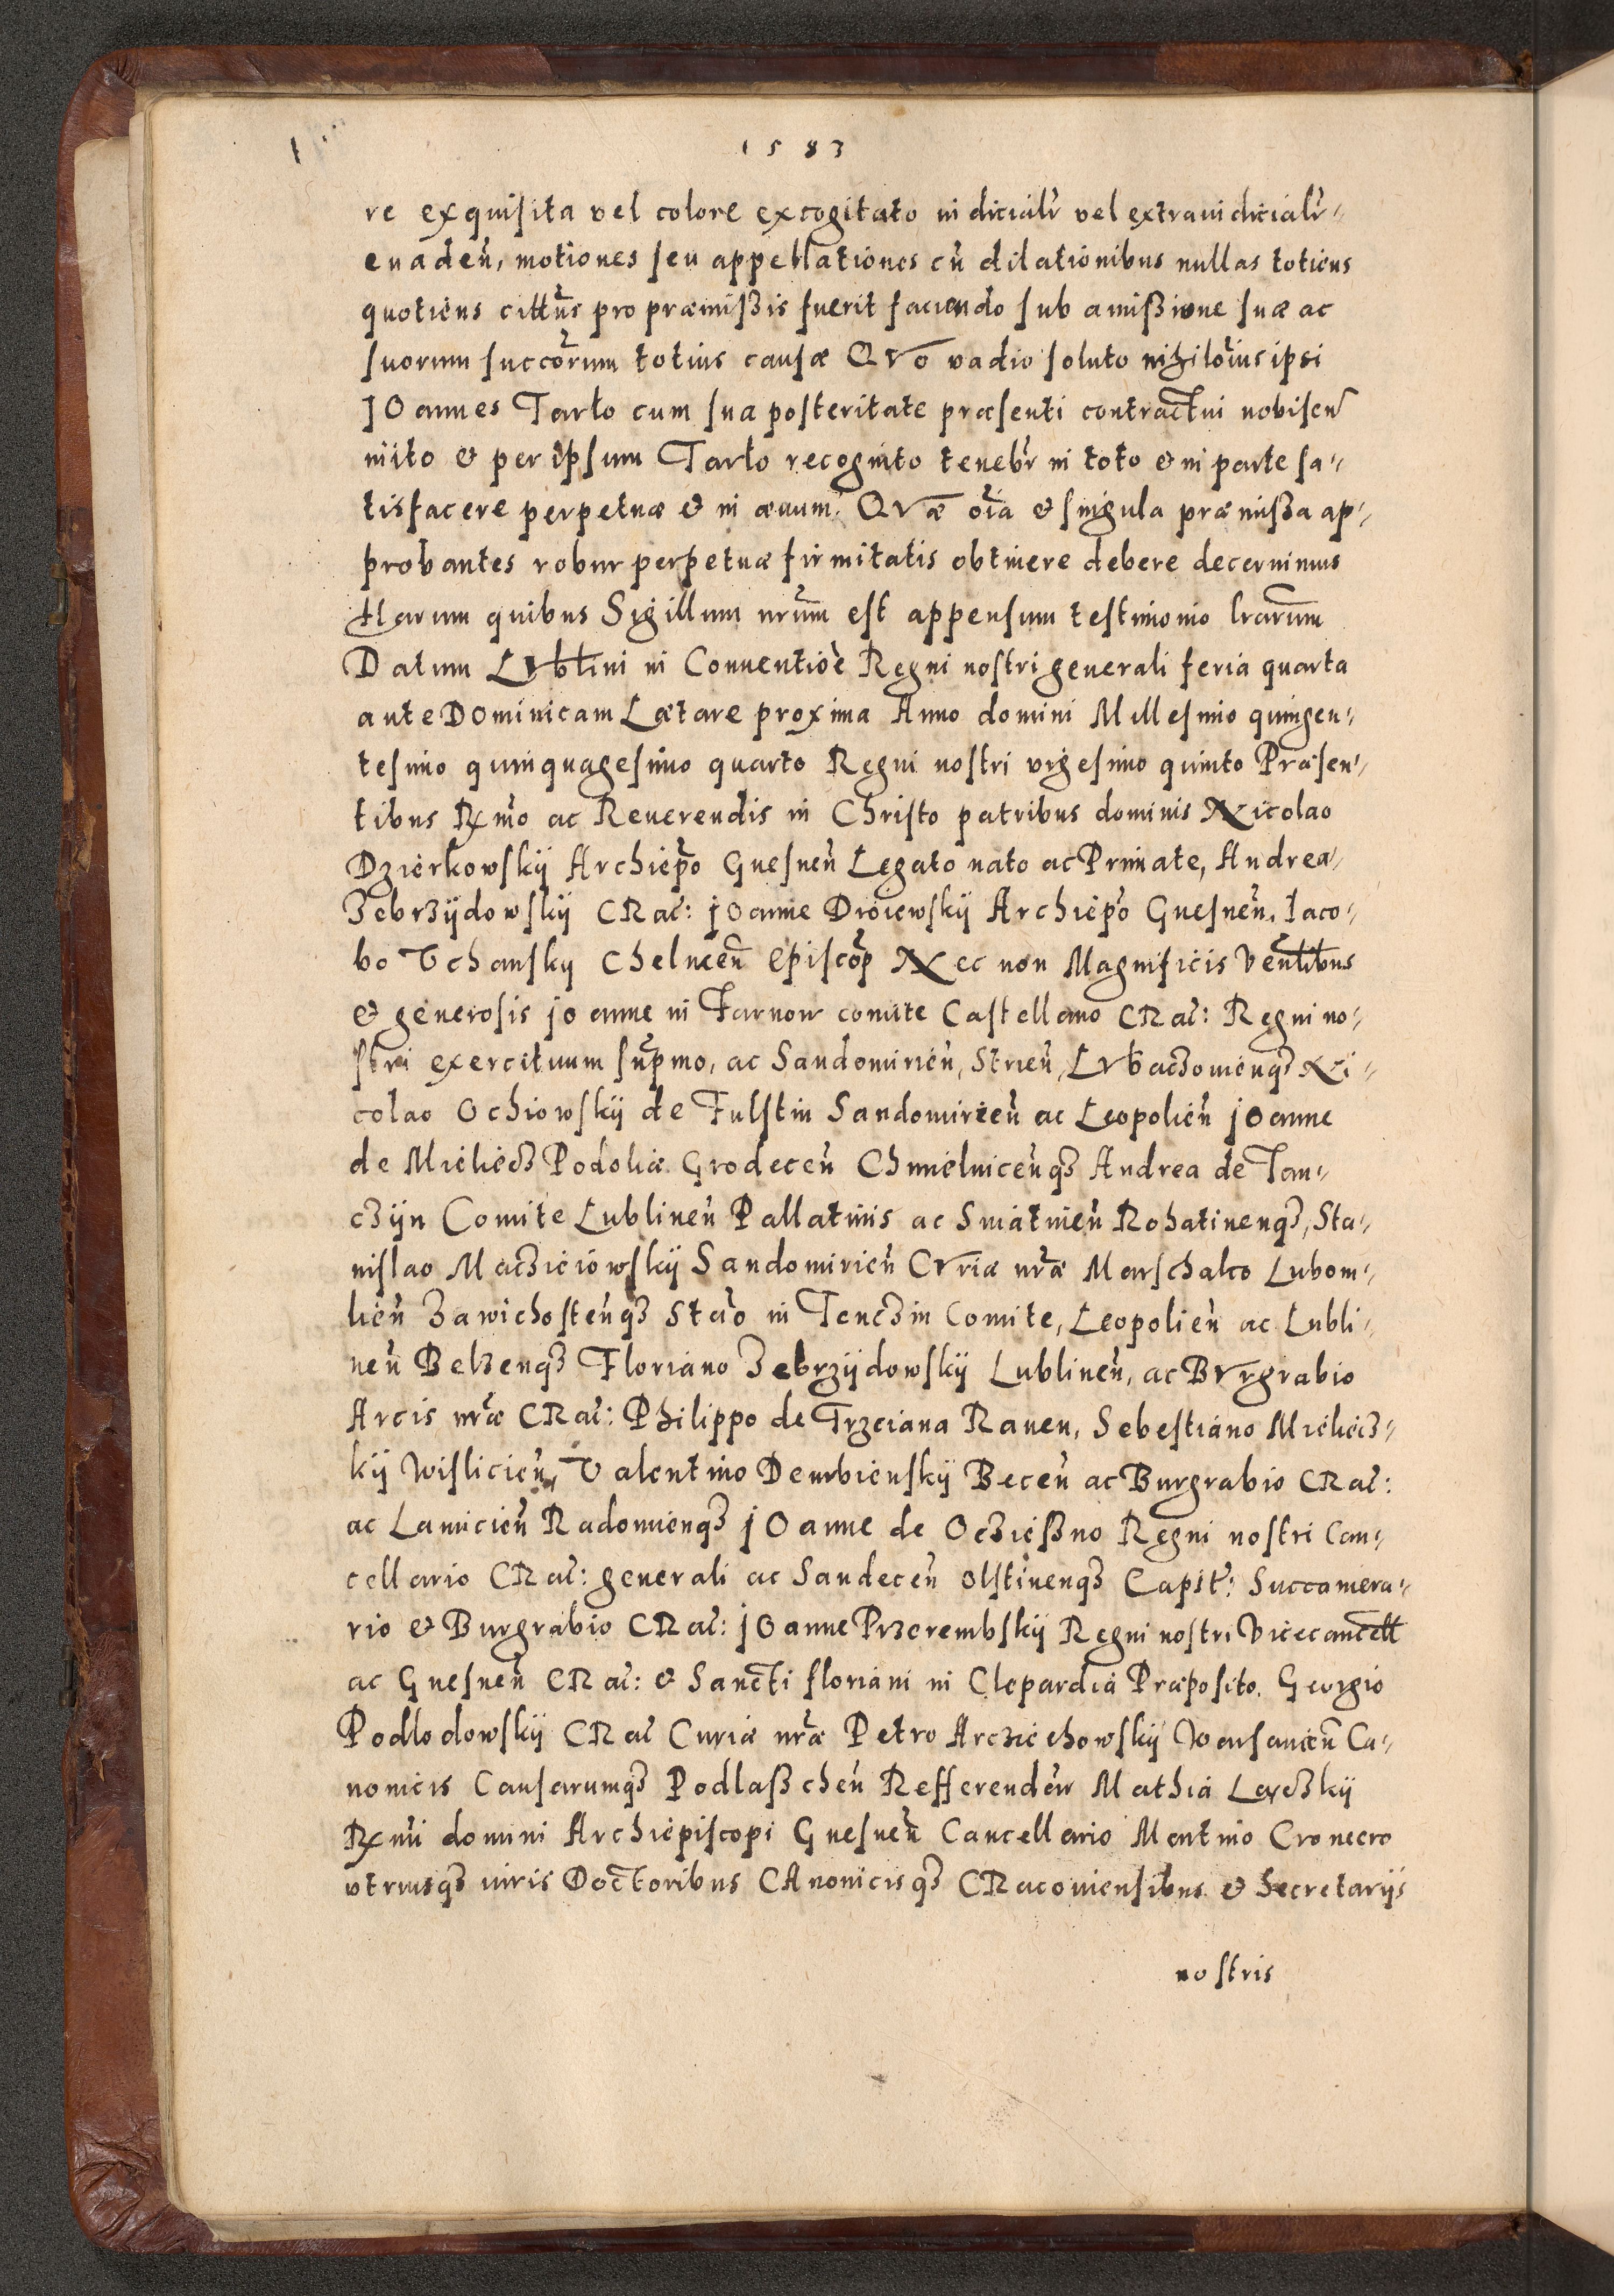 1583
re exquisita vel colore excogitato iudicialr̄ vel extraiudicialr̄
euadeñ, motiones seu appellationes cū dilationibus nullas totiens
quotiens cittūs pro præmißis fuerit faciendo sub amißione suæ ac
suorum succōrum totius causæ Qvo vadio soluto nihilōius ipsi
IOannes Tarło cum sua posteritate præsenti contractui nobiscū
inito & per ipsum Tarło recognito tenebr̄ in toto & in parte sa-
tisfacere perpetuæ & in æuum. Qvæ oīa & singula præmißa ap-
probantes robur perpetuæ firmitatis obtinere debere decernimus
Harum quibus Sigillum nr̄um est appensum testimonio lrarum̄
Datum Lvblini in Conuentiōe Regni nostri generali feria quarta
ante DOminicam Lætare proxima Anno domini Millesimo quingen-
tesimo quinquagesimo quarto Regni nostri vigesimo quinto Præsen-
tibus Rx̄mo ac Reuerendis in Christo patribus dominis Nicolao
Dzierkowskij Archiep̄o Gnesneñ Legato nato ac Primate, Andrea
Zebrzijdowskij CRac̄: jOanne Droiewskij Archiep̄o Gnesneñ, Iaco-
bo Vchansky Chelmeñ Episcop̄ Nec non Magnificis Venlibus
& generosis jo anne in Tarnow comite Castellano CRac̄: Regni no-
stri exercituum sup̄mo, ac Sandomirieñ, Strieñ, Lvbaczouienq3 Ni-
colao Ochiowskij de Fulstin Sandomirieñ ac Leopolieñ jOanne
de Mielecz Podoliæ Grodeceñ Chmielnicenq3 Andrea de Tan-
czijn Comite Lublineñ Pallatinis ac Sniatineñ Rohatinenq3, Sta-
nislao Macziciowskij Sandomirieñ Cvriæ nr̄æ Marschalco Lubom-
lieñ Zawichostenq3 Stāo in Tenczin Comite, Leopolieñ ac Lubli-
neñ Belzenq3 Floriano Zebrzijdowskij Lublineñ, ac Bvrgrabio
Arcis nr̄æ CRac̄: Philippo de Trzciana Raueñ, Sebestiano Mielicz-
kij Wislicieñ, Valentino Dembienskij Beceñ ac Burgrabio CRac̄:
ac Lanicieñ Radomienq3 jOanne de Oczießno Regni nostri Can-
cellario CRac̄: generali ac Sandeceñ Olstinenq3 Capit̄: Succamera-
rio & Burgrabio CRac̄: jOanne Przerembskij Regni nostri Vicecancell
ac Gnesneñ CRac̄: & Sancti floriani in Clepardia Præposito. Georgio
Podlodowskij CRac̄ Curiæ nr̄æ Petro Arcziechowskij Warsauieñ Ca-
nonicis Causarumq3 Podlaßcheñ Refferendeñ Mathia Leyczkij
Rx̄mi domini Archiepiscopi Gnesneñ Cancellario Martino Cromero
vtriusq3 iuris Doctoribus CAnonicisq3 CRacouiensibus & Secretarijs
nostris